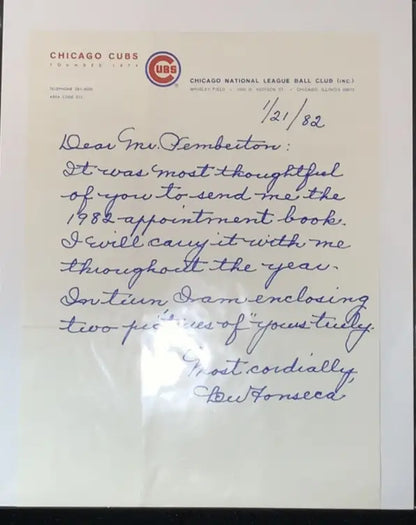 CHICAGO CUBS
FOUNDED 1876
CUBS
CHICAGO NATIONAL LEAGUE BALL CLUB (INC)
TELEPHONE 281-5050
AREA CODE 312
WRIGLEY FIELD • 1060 W. ADDISON ST. • CHICAGO, ILLINOIS 60613
1/21/82
Dear Mr. Pemberton:
It was most thoughtful
of you to send me the
1982 appointment book.
I will carry it with me
throughout the year.
In turn I am enclosing
two pictures of "yours truly.
Most cordially,
Lew Fonseca